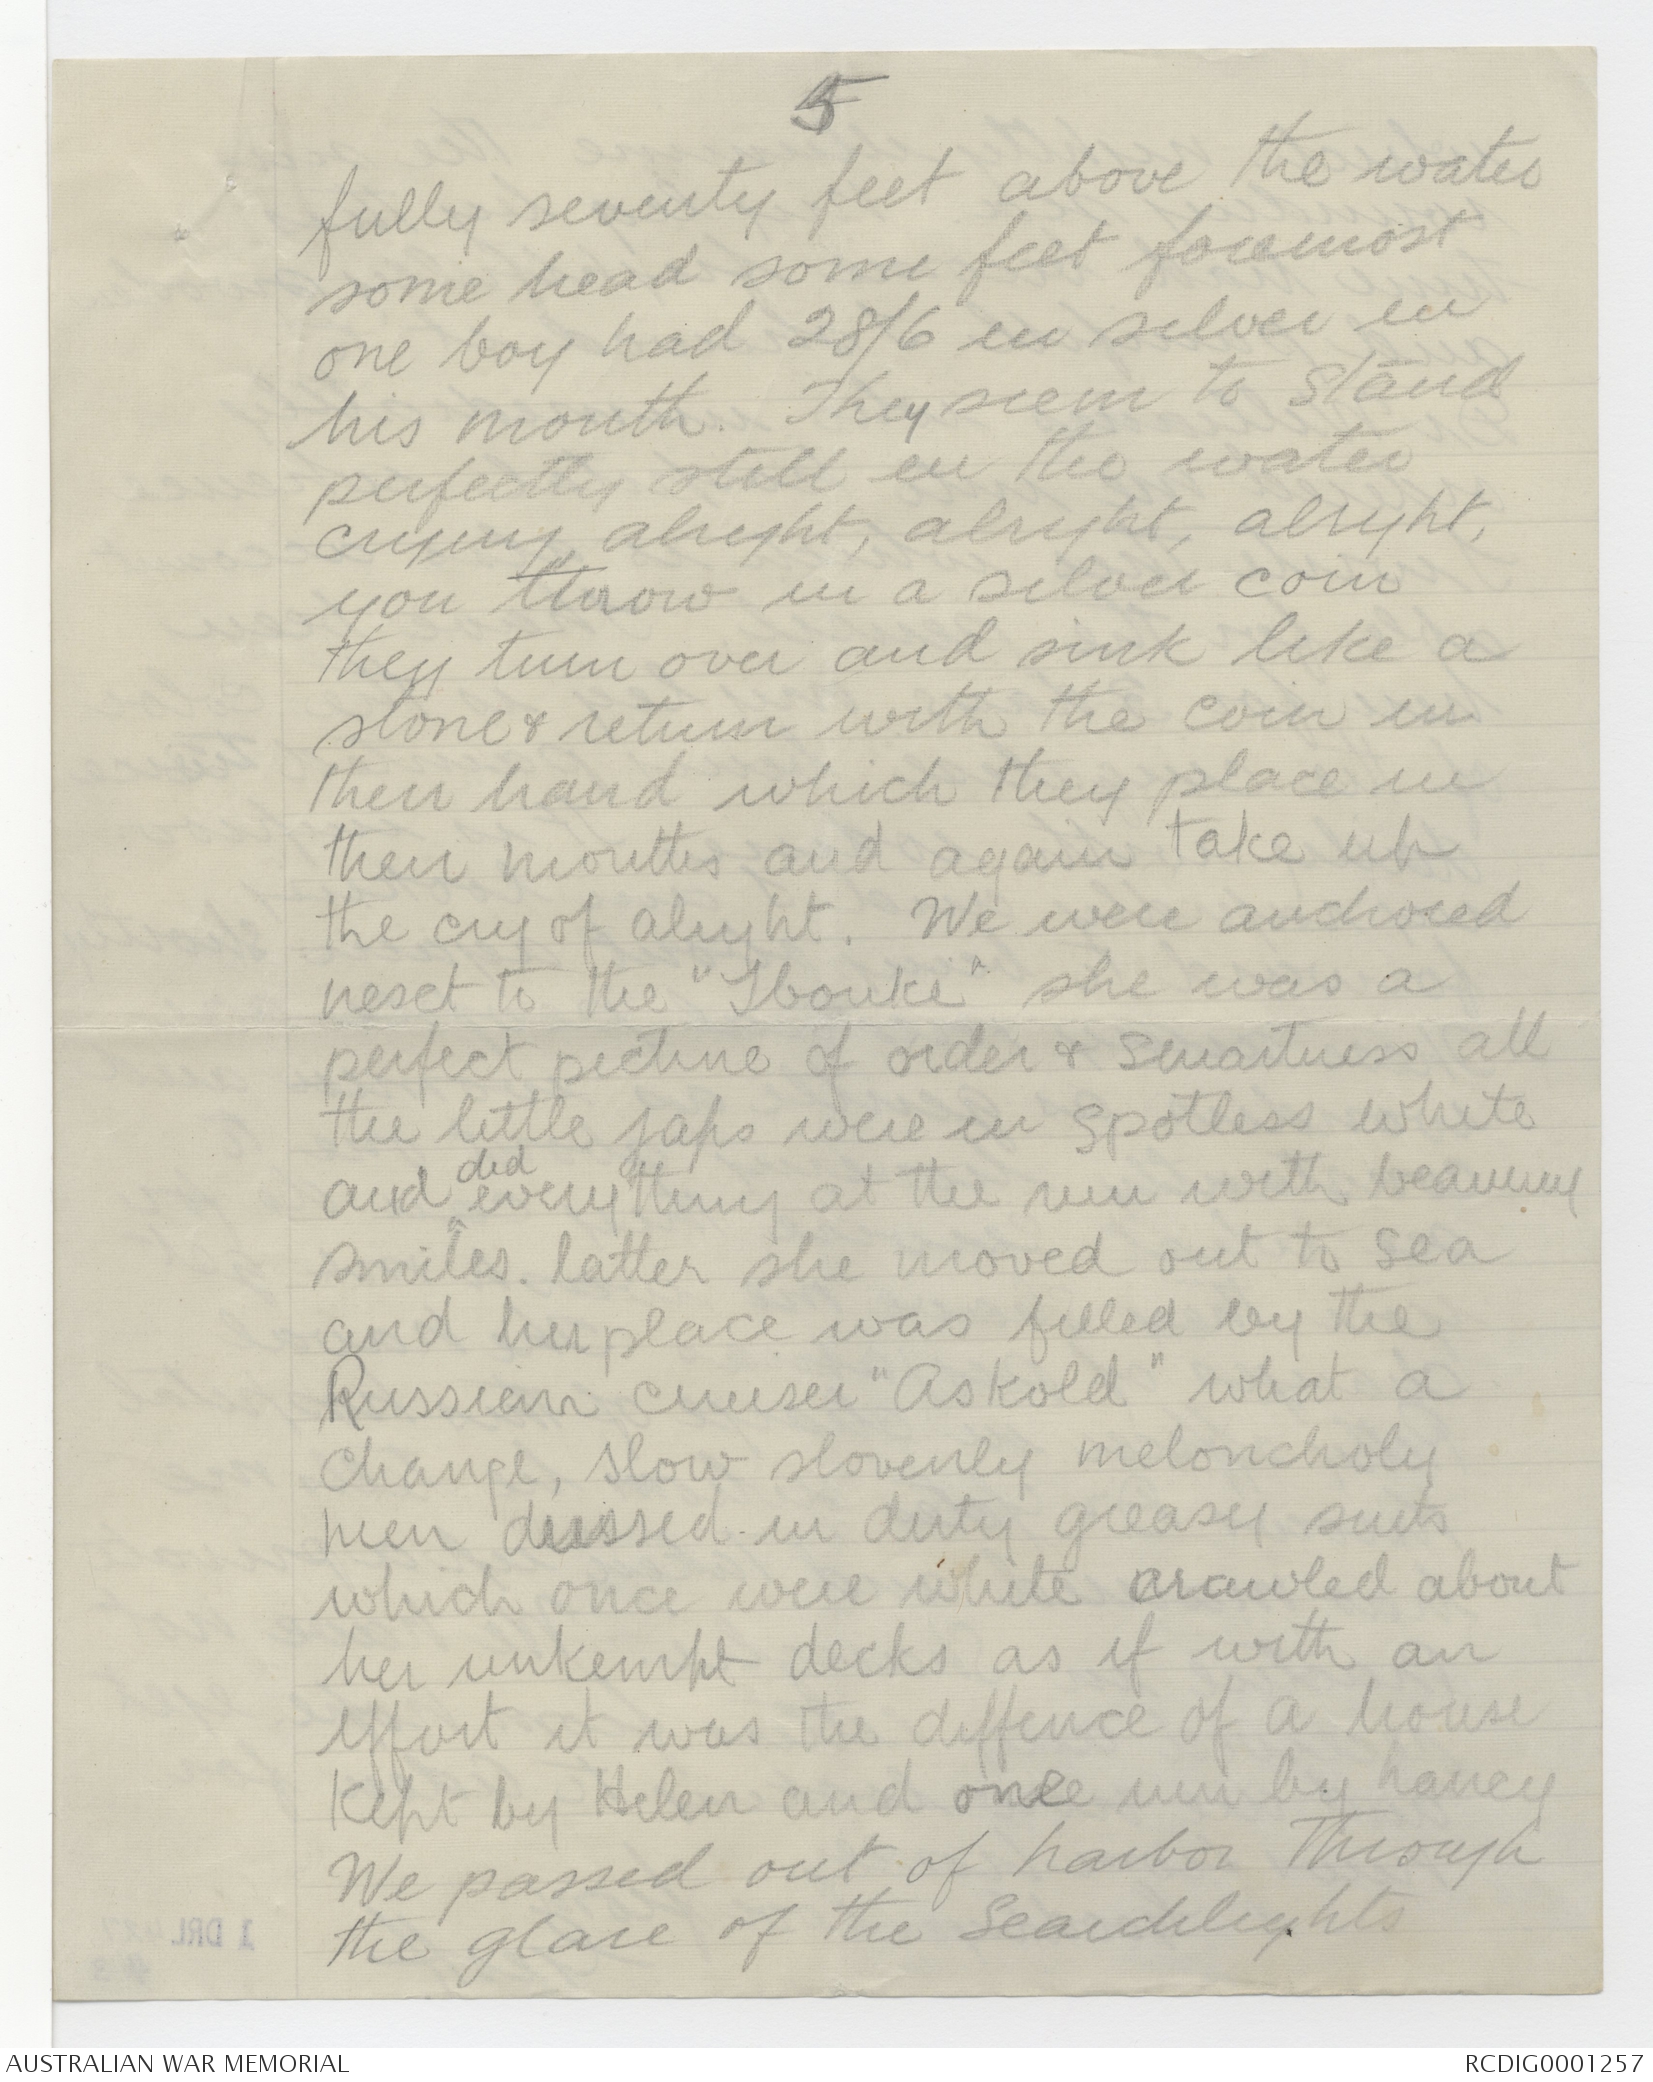 5
fully seventy feet above the water
some head some feet foremost
one boy had 28/6 in silver in
his mouth. They seem to stand
perfectly still in the water
crying, alright, alright, alright,
you throw in a silver coin
they turn over and sink like a
stone & return with the coin in
their hand which they place in
their mouths and again take up
the cry of alright. We were anchored
next to the "Ibouki" she was a
perfect picture of order & smartness all
the little japs were in spotless white
and did everything at the run with beaming
smiles. latter she moved out to sea
and her place was filled by the
Russian cruiser "Askold" what a
change, slow slovenly meloncholy
men dressed in dirty greasy suits
which once were white crawled about
her unkempt decks as if with an
effort it was the diffence of a house
Kept by Helen and one run by nancy
We passed out of harbor through
the glare of the Searchlights
1 DRL
AUSTRALIAN WAR MEMORIAL
RCDIG0001257